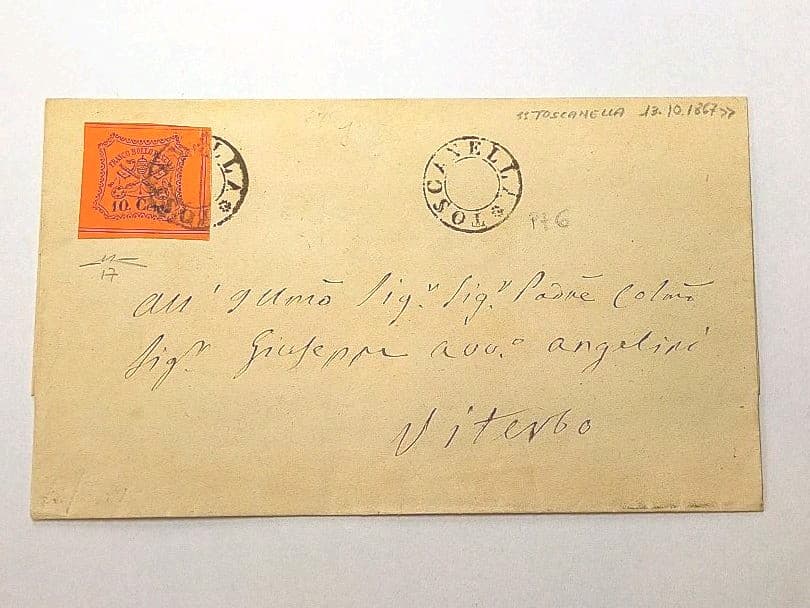 "TOSCANELLA 13.10.1867"
FRANCO BOLLO
10. Cent
TOSCANELLA
TOSCANELLA
P76
17
All' Illmõ Sig.r Sig.r Padñe Colmõ
Sig.r Giuseppe Avv.o Angelini
Viterbo